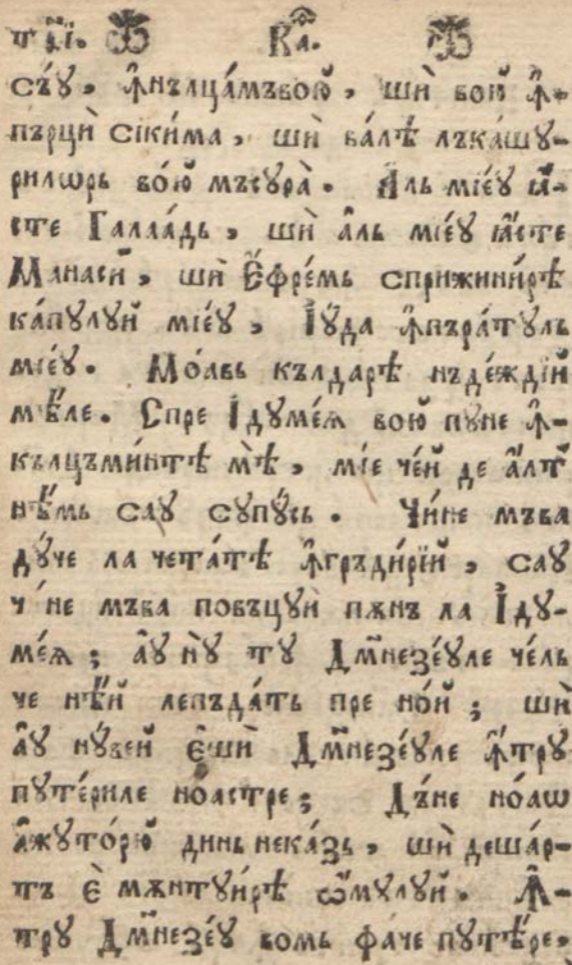 п҃гі. К҃а.
съꙋ, ꙟнълца́мъвою̆, шѝ вою̆ ꙟ-
пърци́ Сікима, шѝ ва́лѣ лъка́шꙋ-
рилѡрь во́ю̆ мъсꙋра̀. А҆ль міе́ꙋ ꙗ҆́-
сте Галаа́дь, шѝ а҆́ль міе́ꙋ ꙗ҆́сте
Манасі́й, шѝ Е҆фре́мь сприжини́рѣ
ка́пꙋлꙋй міе́ꙋ, І҆ꙋ́да ꙟпъра́тꙋль
міе́ꙋ. Мо́авь кълдарѣ нъде́ждїй
мѣ́ле. Спре І҆дꙋме́ѧ вою̆ пꙋ́не ꙟ-
кълцъми́нтѣ мѣ̀, мі́е че́й де а҆́лт
нѣ́мь саꙋ сꙋпꙋ́сь. Чи́не мъва
дꙋ́че ла чета́тѣ ꙟгръди́рїй, саꙋ
чи́не мъва повъцꙋѝ пѫнъ ла І҆дꙋ-
ме́ѧ; а҆́ꙋ нꙋ̀ тꙋ Дм҃незе́ꙋле че́ль
че нѣ́й лепъда́ть пре но́й; шѝ
а҆́ꙋ нꙋ́вей є҆шѝ Дм҃незе́ꙋле ꙟ҆́трꙋ
пꙋте́риле но́астре; Дъ́не но́аѡ
а҆жꙋто́рю̆ динь нека́зь, шѝ деша́р-
тъ є҆̀ мѫнтꙋи́рѣ ѡ҆́мꙋлꙋй. Ꙟ҆-
трꙋ Дм҃незе́ꙋ вомь фа́че пꙋтѣ́ре,